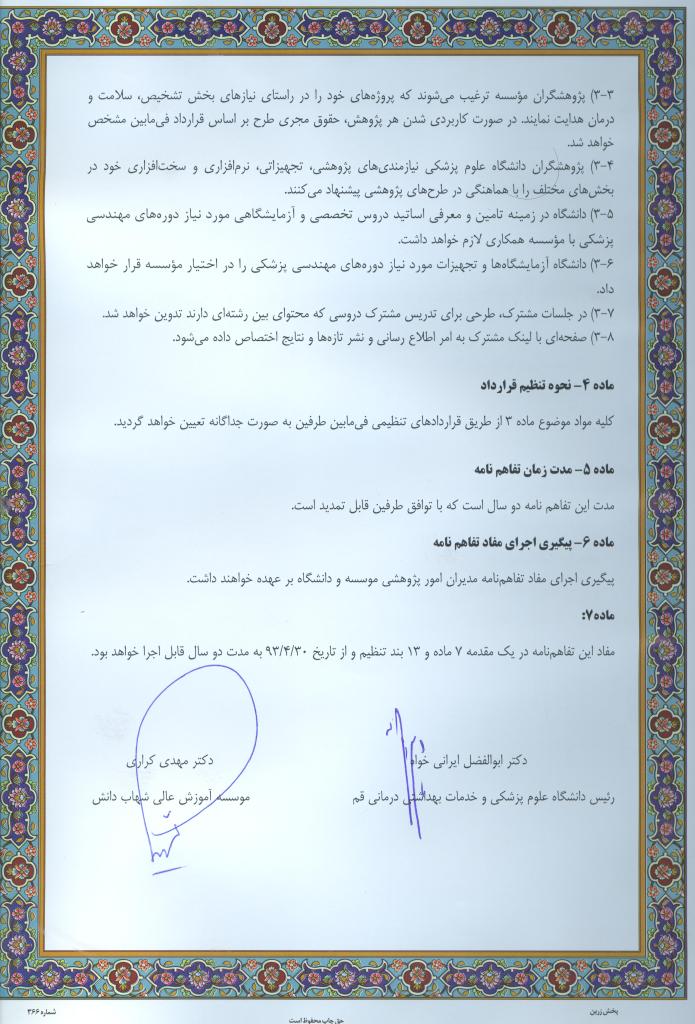 ۳-۳) پژوهشگران مؤسسه ترغیب می‌شوند که پروژه‌های خود را در راستای نیازهای بخش تشخیص، سلامت و
درمان هدایت نمایند. در صورت کاربردی شدن هر پژوهش، حقوق مجری طرح بر اساس قرارداد فی‌مابین مشخص
خواهد شد.
۳-۴) پژوهشگران دانشگاه علوم پزشکی نیازمندی‌های پژوهشی، تجهیزاتی، نرم‌افزاری و سخت‌افزاری خود در
بخش‌های مختلف را با هماهنگی در طرح‌های پژوهشی پیشنهاد می‌کنند.
۳-۵) دانشگاه در زمینه تامین و معرفی اساتید دروس تخصصی و آزمایشگاهی مورد نیاز دوره‌های مهندسی
پزشکی با مؤسسه همکاری لازم خواهد داشت.
۳-۶) دانشگاه آزمایشگاه‌ها و تجهیزات مورد نیاز دوره‌های مهندسی پزشکی را در اختیار مؤسسه قرار خواهد
داد.
۳-۷) در جلسات مشترک، طرحی برای تدریس مشترک دروسی که محتوای بین رشته‌ای دارند تدوین خواهد شد.
۳-۸) صفحه‌ای با لینک مشترک به امر اطلاع رسانی و نشر تازه‌ها و نتایج اختصاص داده می‌شود.
ماده ۴- نحوه تنظیم قرارداد
کلیه مواد موضوع ماده ۳ از طریق قراردادهای تنظیمی فی‌مابین طرفین به صورت جداگانه تعیین خواهد گردید.
ماده ۵- مدت زمان تفاهم نامه
مدت این تفاهم نامه دو سال است که با توافق طرفین قابل تمدید است.
ماده ۶- پیگیری اجرای مفاد تفاهم نامه
پیگیری اجرای مفاد تفاهم‌نامه مدیران امور پژوهشی موسسه و دانشگاه بر عهده خواهند داشت.
ماده۷:
مفاد این تفاهم‌نامه در یک مقدمه ۷ ماده و ۱۳ بند تنظیم و از تاریخ ۹۳/۴/۳۰ به مدت دو سال قابل اجرا خواهد بود.
دکتر ابوالفضل ایرانی خواه
دکتر مهدی کراری
رئیس دانشگاه علوم پزشکی و خدمات بهداشتی درمانی قم
موسسه آموزش عالی شهاب دانش
پخش زرین
حق چاپ محفوظ است
شماره ۳۶۶